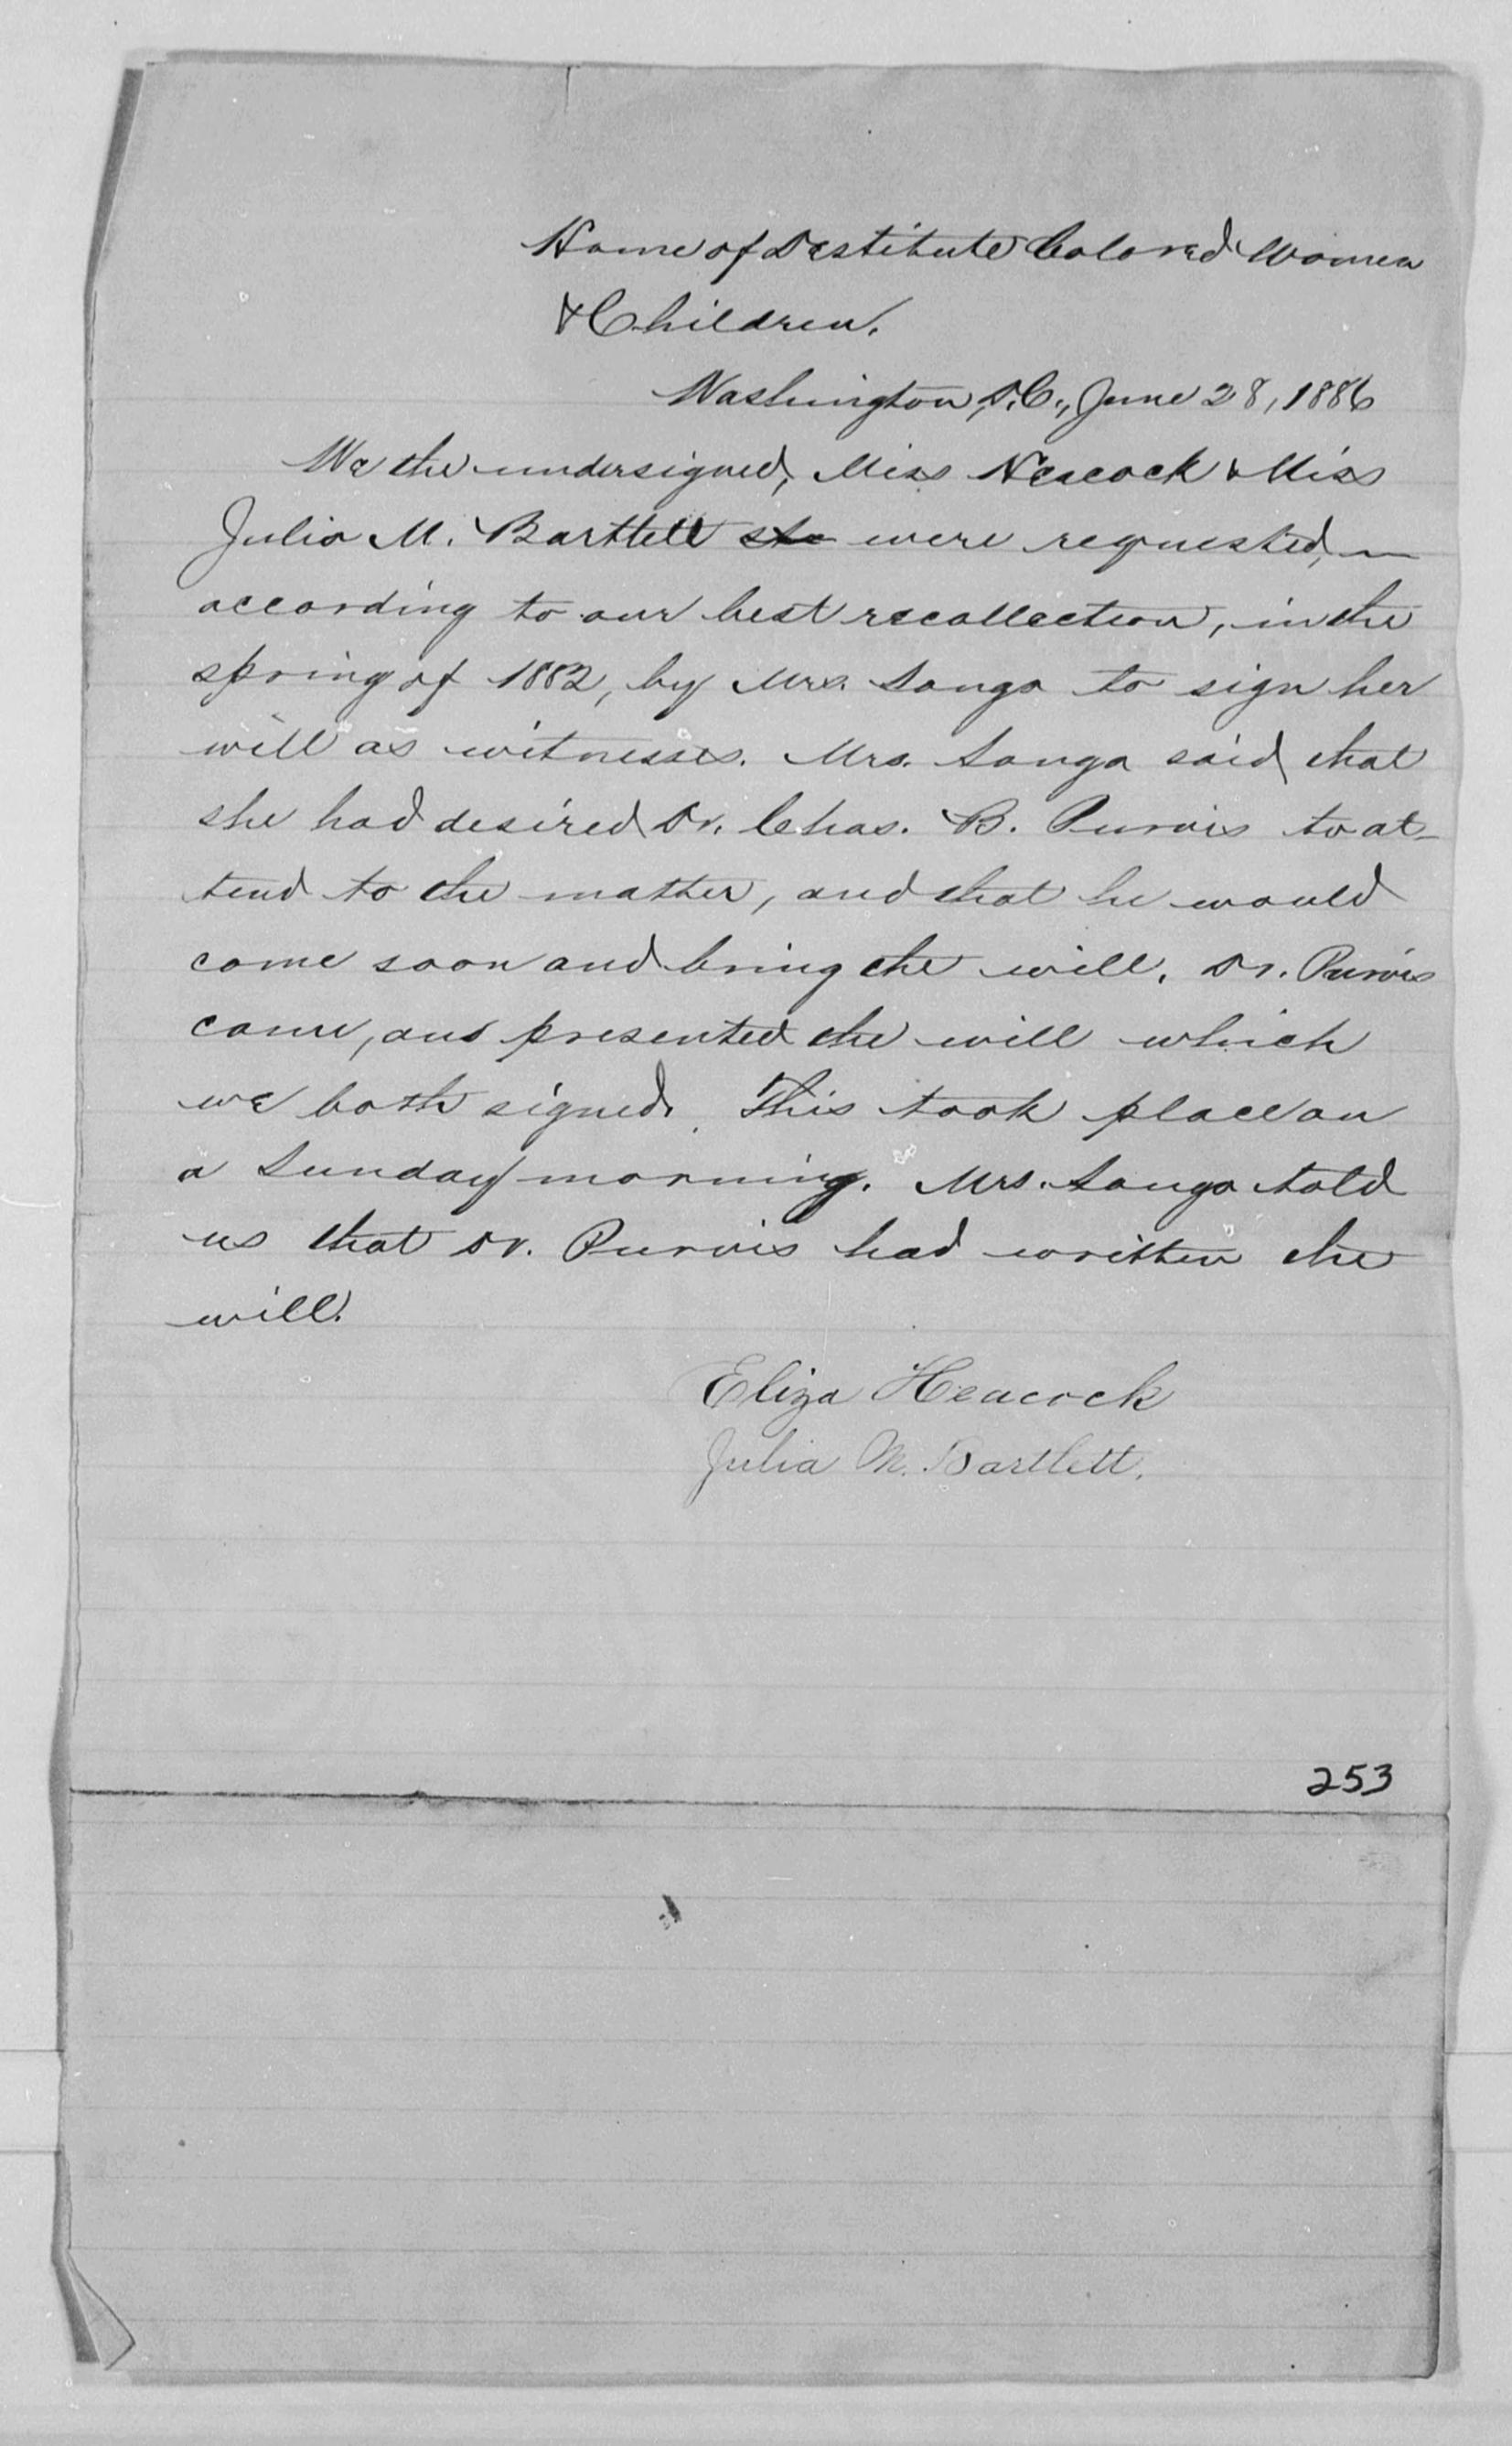 Home of Destitute Colored Women
& Children.
Washington, D.C., June 28, 1886
We the undersigned, Miss Heacock & Miss
Julia M. Bartlett were requested, —
according to our best recollection, in the
spring of 1882, by Mrs. Songa to sign her
will as witnesses. Mrs. Songa said that
she had desired Dr. Chas. B. Purvis to at-
tend to the matter, and that he would
come soon and bring the will. Dr. Purvis
came, and presented the will which
we both signed. This took place on
a Sunday morning. Mrs. Songa told
us that Dr. Purvis had written the
will.
Eliza Heacock
Julia M. Bartlett.
253